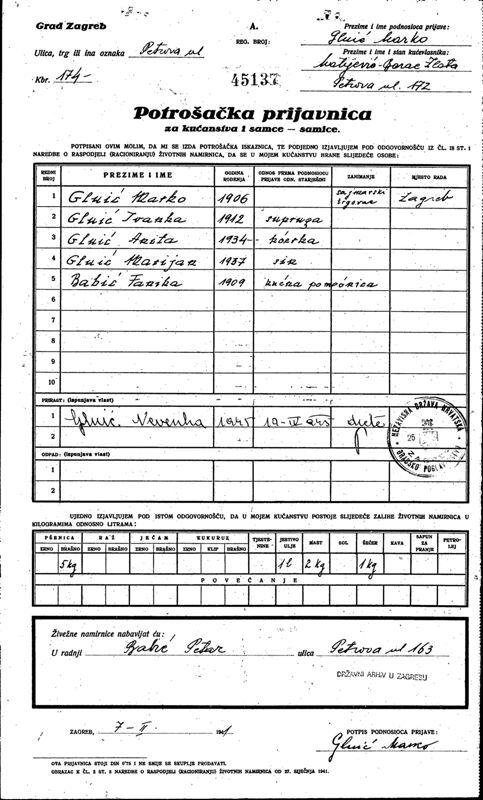 Grad Zagreb
A.
Prezime i ime podnosioca prijave:
Gluić Marko
Ulica, trg ili ina oznaka Petrova ul
REG. BROJ:
Prezime i ime i stan kućevlasnika:
Matijević-Gorac Zlata
Kbr. 174-
45137
Petrova ul. 172
Potrošačka prijavnica
za kućanstva i samce — samice.
POTPISANI OVIM MOLIM, DA MI SE IZDA POTROŠAČKA ISKAZNICA, TE PODJEDNO IZJAVLJUJEM POD ODGOVORNOŠĆU IZ ČL. 18 ST. 1
NAREDBE O RASPODJELI (RACIONIRANJU) ŽIVOTNIH NAMIRNICA, DA SE U MOJEM KUĆANSTVU HRANE SLIJEDEĆE OSOBE:
REDNI BROJ PREZIME I IME GODINA ROĐENJA ODNOS PREMA PODNOSIOCU PRIJAVE ODN. STARJEŠINI ZANIMANJE MJESTO RADA
1 Gluić Marko 1906 sajmarski trgovac Zagreb
2 Gluić Ivanka 1912 supruga
3 Gluić Anita 1934- kćerka
4 Gluić Marijan 1937 sin
5 Babić Fanika 1909 kućna pomoćnica
6
7
8
9
10
PRIRAST: (ispunjava vlast)
1 Gluić Nevenka 1945 dijete
2
NEZAVISNA DRŽAVA HRVATSKA
25
ZAGREB
OTPAD: (ispunjava vlast)
1
2
UJEDNO IZJAVLJUJEM POD ISTOM ODGOVORNOŠĆU, DA U MOJEM KUĆANSTVU POSTOJE SLIJEDEĆE ZALIHE ŽIVOTNIH NAMIRNICA U
KILOGRAMIMA ODNOSNO LITRAMA:
PŠENICA RAŽ JEČAM KUKURUZ TJESTENINE JESTIVO ULJE MAST SOL ŠEĆER KAVA SAPUN ZA PRANJE PETROLEJ
ZRNO BRAŠNO ZRNO BRAŠNO ZRNO BRAŠNO ZRNO KLIP BRAŠNO
5kg 1l 2kg 1kg
POVEĆANJE
Živežne namirnice nabavljat ću:
U radnji Babić Petar ulica Petrova ul 163
DRŽAVNI ARHIV U ZAGREBU
ZAGREB, 7-II. 1941
POTPIS PODNOSIOCA PRIJAVE:
Gluić Marko
OVA PRIJAVNICA STOJI DIN 0'75 I NE SMIJE SE SKUPLJE PRODAVATI.
OBRAZAC K ČL. 2 ST. 2 NAREDBE O RASPODJELI (RACIONIRANJU) ŽIVOTNIH NAMIRNICA OD 27. SIJEČNJA 1941.